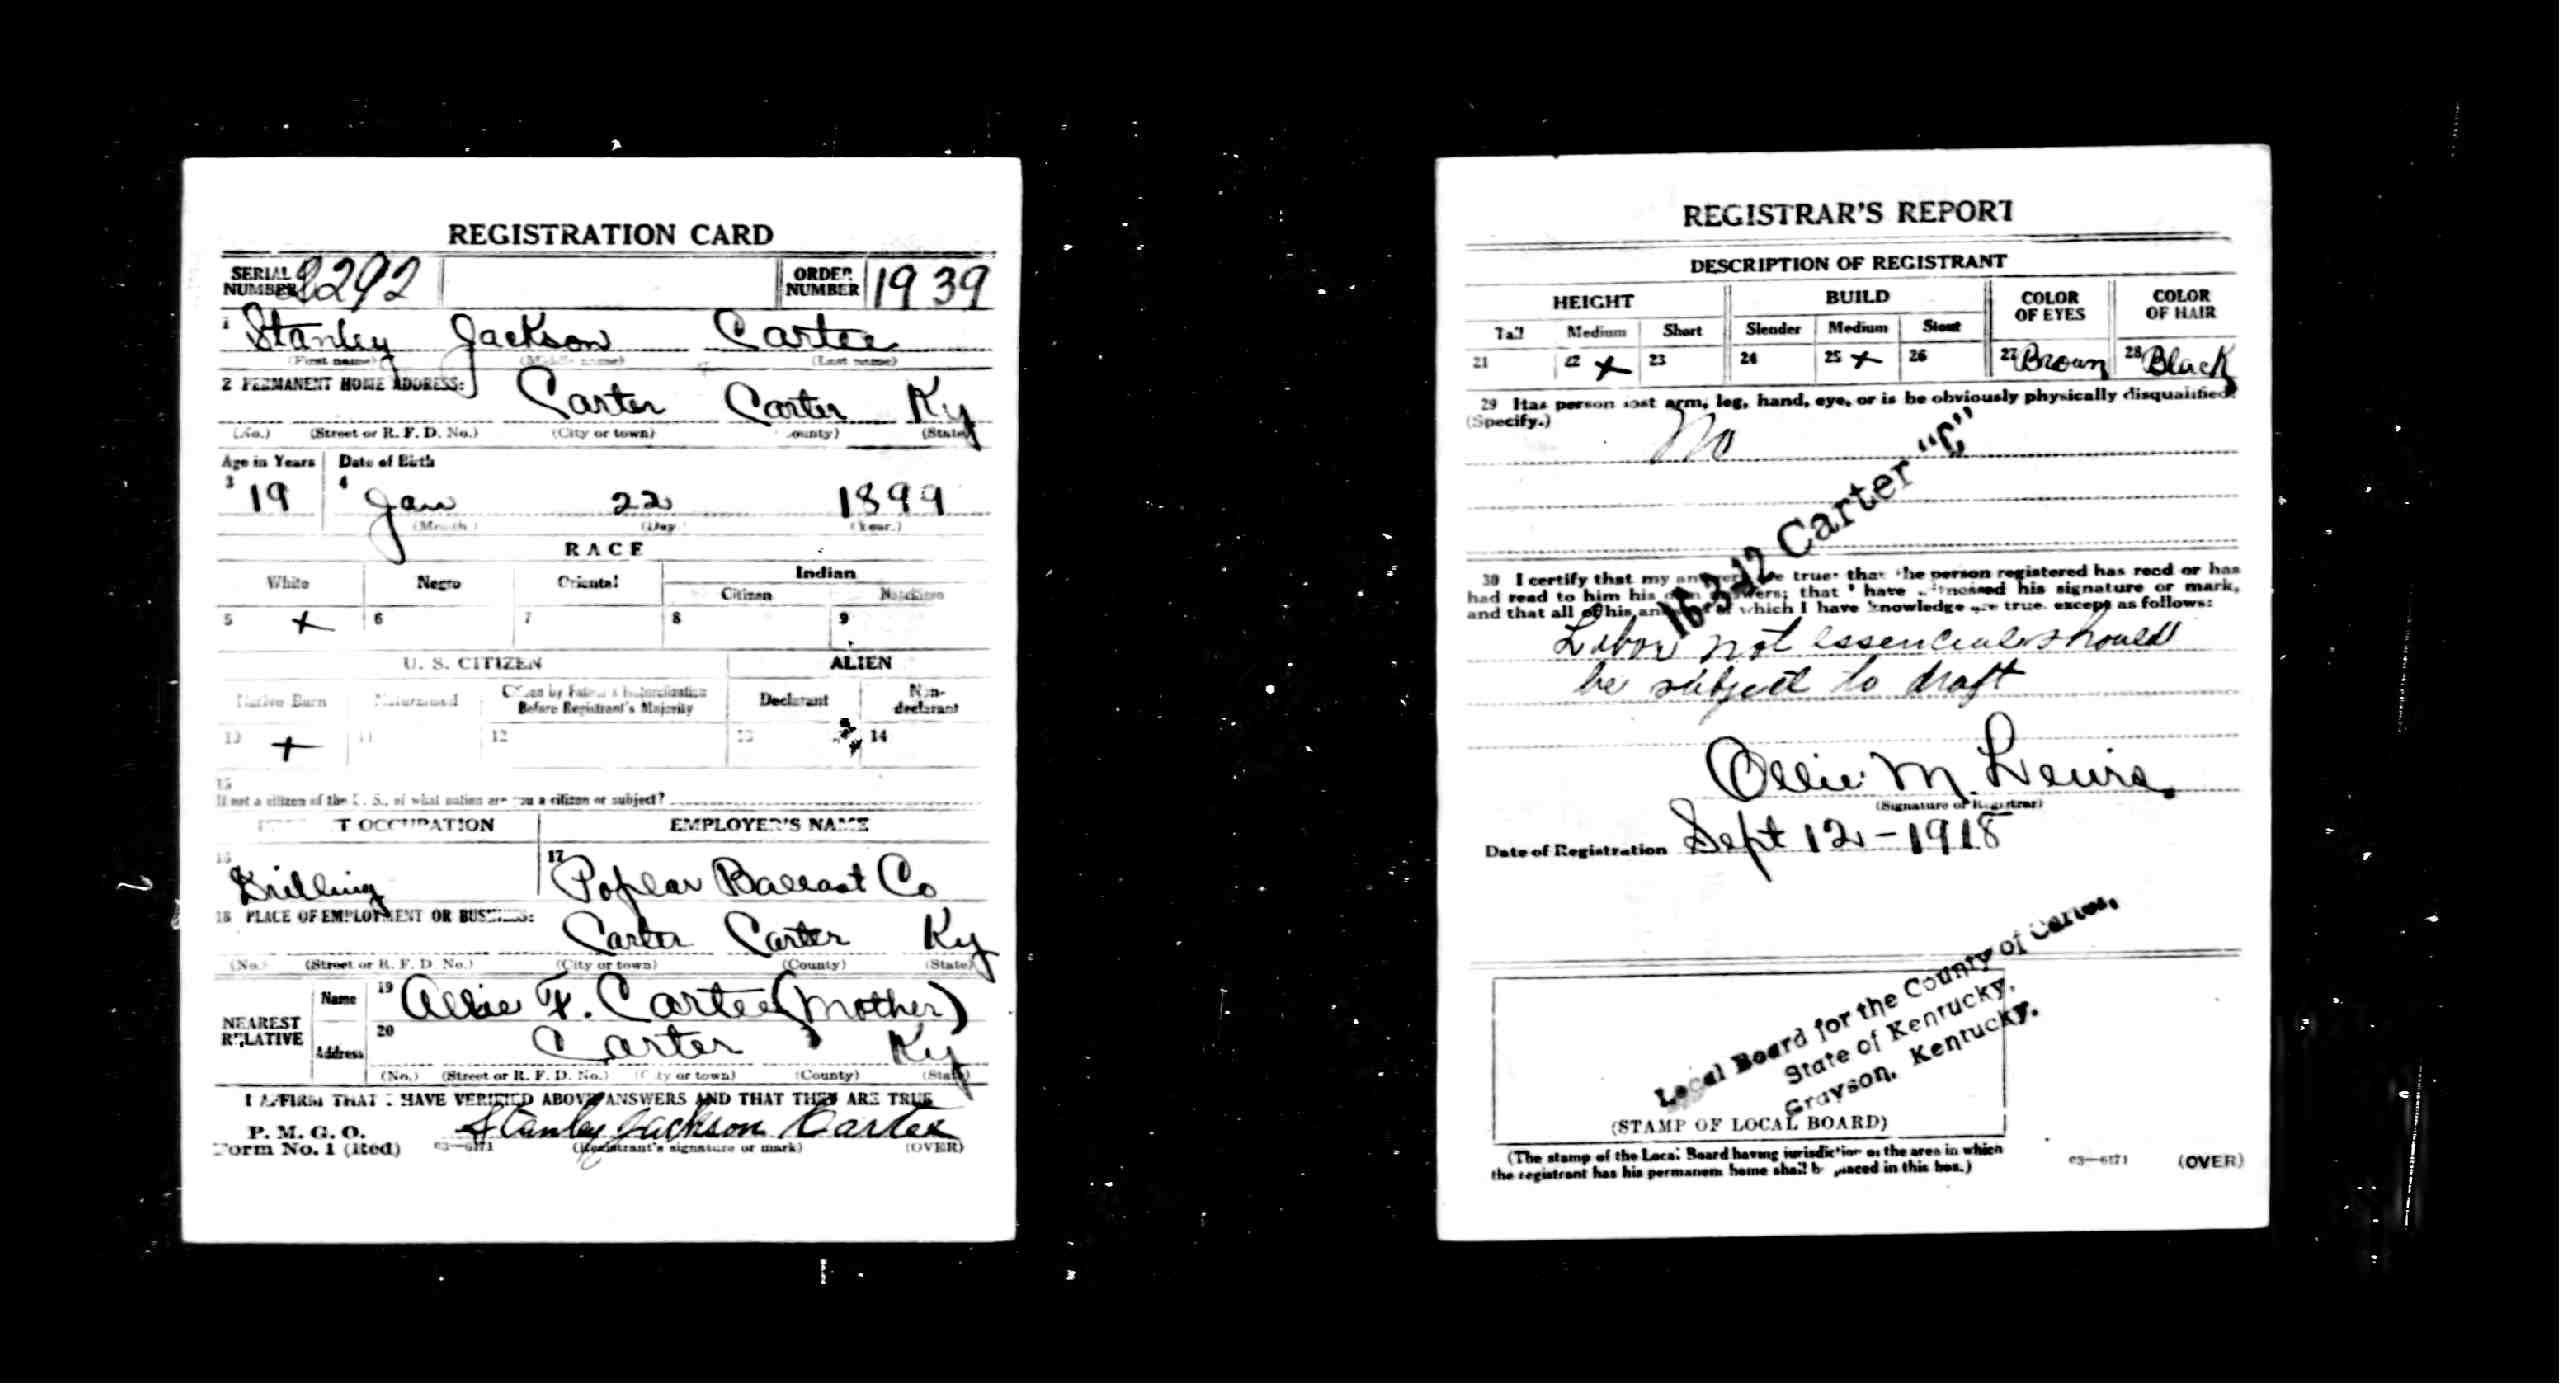 REGISTRATION CARD
SERIAL NUMBER 2292 ORDER NUMBER 1939
1 Stanley Jackson Cartee
(First name) (Middle name) (Last name)
2 PERMANENT HOME ADDRESS:
Carter Carter Ky
(No.) (Street or R. F. D. No.) (City or town) (County) (State)
Age in Years Date of Birth
3 19 4 Jan 22 1899
(Month.) (Day.) (Year.)
RACE
White Negro Oriental Indian
Citizen Noncitizen
5 x 6 7 8 9
U. S. CITIZEN ALIEN
Native Born Naturalized Citizen by Father's Naturalization Before Registrant's Majority Declarant Non-declarant
10 x 11 12 13 14
15
If not a citizen of the U. S., of what nation are you a citizen or subject?
PRESENT OCCUPATION EMPLOYER'S NAME
16 Drilling 17 Poplar Ballast Co
18 PLACE OF EMPLOYMENT OR BUSINESS:
Carter Carter Ky
(No.) (Street or R. F. D. No.) (City or town) (County) (State)
NEAREST RELATIVE Name 19 Allie F. Cartee (Mother)
Address 20 Carter Ky
(No.) (Street or R. F. D. No.) (City or town) (County) (State)
I AFFIRM THAT I HAVE VERIFIED ABOVE ANSWERS AND THAT THEY ARE TRUE
P. M. G. O.
Form No. 1 (Red) 03—6171 Stanley Jackson Cartee
(Registrant's signature or mark) (OVER)
REGISTRAR'S REPORT
DESCRIPTION OF REGISTRANT
HEIGHT BUILD COLOR OF EYES COLOR OF HAIR
Tall Medium Short Slender Medium Stout
21 22 x 23 24 25 x 26 27 Brown 28 Black
29 Has person lost arm, leg, hand, eye, or is he obviously physically disqualified?
(Specify.) No
16-3-12 Carter "C"
30 I certify that my answers are true; that the person registered has read or has
had read to him his own answers; that I have witnessed his signature or mark,
and that all of his answers of which I have knowledge are true, except as follows:
Labor not essencial should
be subject to draft
Ollie M. Lewis
(Signature of Registrar)
Date of Registration Sept 12 - 1918
Local Board for the County of Carter,
State of Kentucky,
Grayson, Kentucky.
(STAMP OF LOCAL BOARD)
(The stamp of the Local Board having jurisdiction of the area in which
the registrant has his permanent home shall be placed in this box.)
03—6171 (OVER)